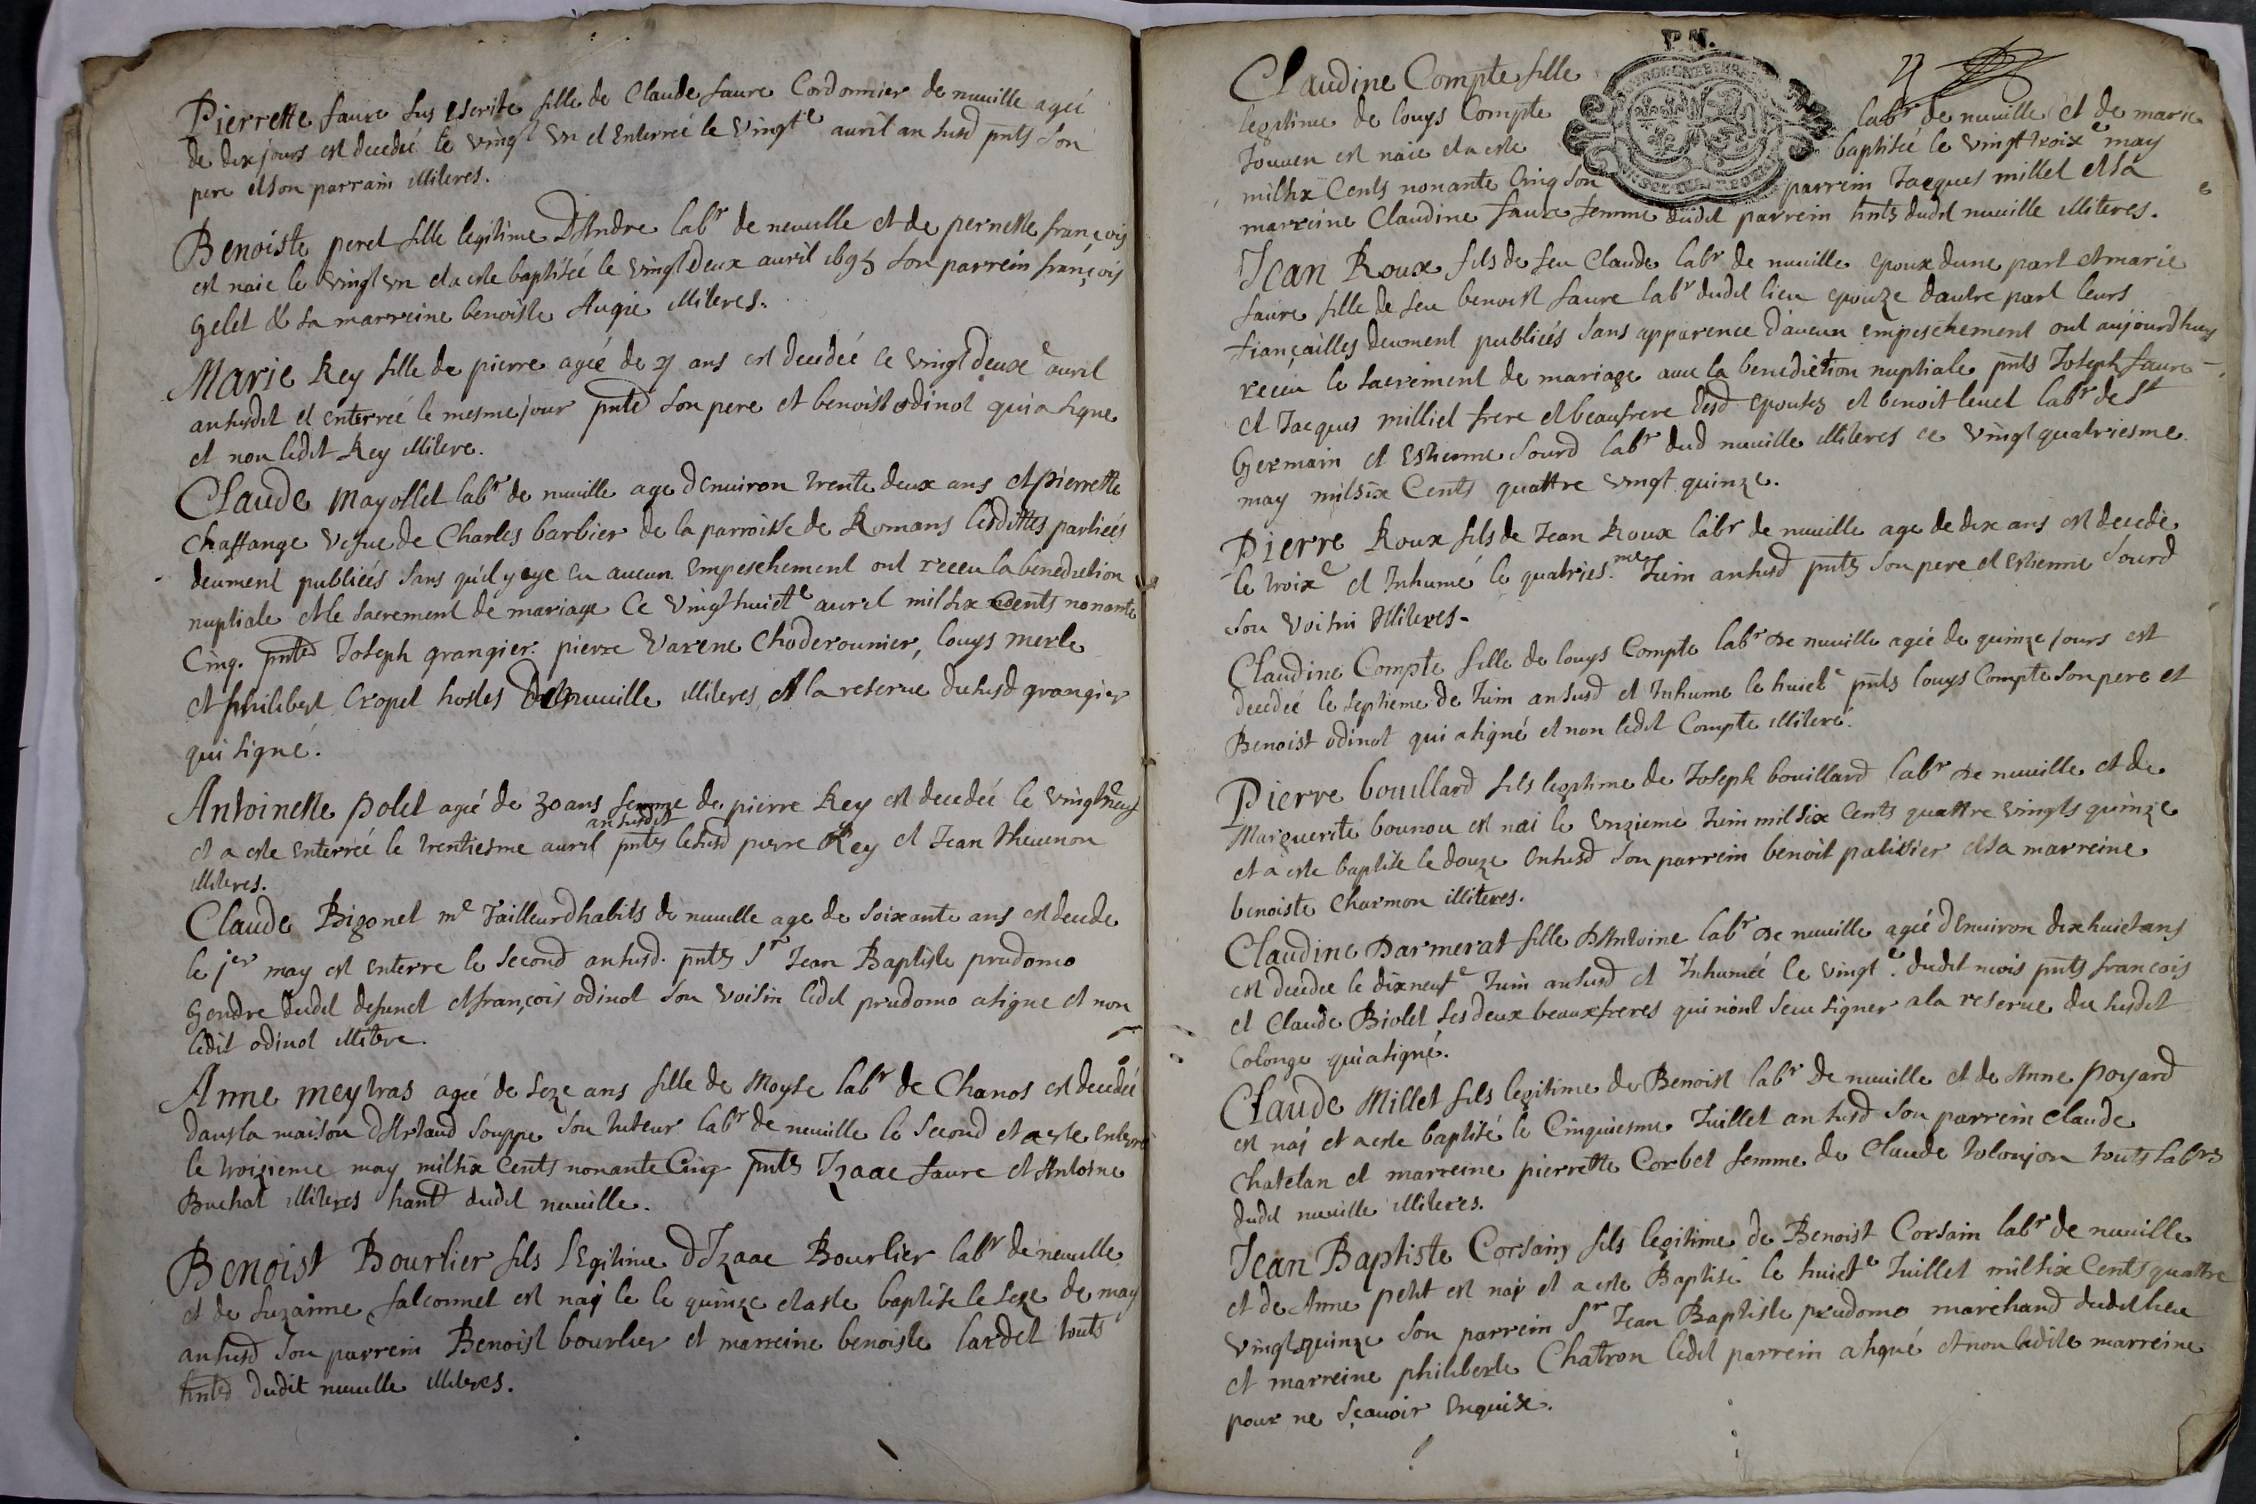 Pierrette faure sus escrite fille de Claude faure Cordonnier de nuville ageé
de dix jours est decedeé le vingt un et Enterreé le vingt.e avril an susd pnts son
pere et son parrain illiteres.
Benoiste peret fille legitime D'Andre labr de neuville et de pernette françois
est naie le vingt un et a este baptiseé le vingt Deux avril 1695 son parrein françois
gelet & sa marreine benoiste Augié illiteres.
Marie Rey fille de pierre ageé de 21 ans est decedeé ce vingt deuxe avril
an susdit et enterreé le mesme jour pnts son pere et benoist odinot qui a signe
et non ledit Rey illitere.
Claude Mayollet labr de nuville age denviron trente deux ans et pierrette
Chaffange vefue de Charles barbier de la parroisse de Romans lesdittes partieés
deument publieés sans qu'il y aye eu aucun empeschement ont receu la benediction
nuptiale et le sacrement de mariage Ce vingt huicte avril mil six Cents nonante
Cinq. pnts Joseph grangier. pierre varene Choderounier, louys merle
et philibert Cropet hostes Dud nuuille illiteres A la reserue du susd grangier
qui signé.
Antoinette polet ageé de 30 ans femme de pierre Rey est decedeé le vingt neuf
an susdit
et a este Enterreé le trentiesme avril pnts le susd pierre Rey et Jean thevenon
illiteres.
Claude Bigonet me Tailleur d'habits de nuuille age de soixante ans est decede
le jer may est enterre le second an susd. pnts Sr Jean Baptiste prudomo
Gendre dudit defunct et françois odinot son voisin ledit prudomo a signe et non
ledit odinot illitere.
Anne meytras ageé de seze ans fille de Moyse labr de Chanos est decedeé
dans la maison d'Artaud souppe son tuteur labr de neuille le second et a este enterré
le troizieme may mil six Cents nonante Cinq pnts Izaac faure et Antoine
Buchat illiteres hants dudit neuuille.
Benoist Bourlier fils legitime D'Izaac Bourlier labr de neuuille
et de Suzanne falconnet est naj le le quinze et a este baptise le seze de may
an susd son parrein Benoist bourlier et marreine benoiste lardet touts
hnts dudit nuuille illiteres.
P.N.
Claudine Compte fille
legitime de louys Compte labr de nuuille et de marie
Jouuen est naie et a este baptiseé le vingt troixe may
mil six Cents nonante Cinq son parrein Jacques millet et sa
marreine Claudine faure femme dudit parrein hnts dudit nuuille illiteres.
Jean Roux fils de feu Claude labr de nuuille epoux dune part et marie
faure fille de feu benoist faure labr dudit lieu epouze dautre part leurs
fiançailles deument publieés sans apparence d'aucun empeschement ont aujourdhuy
receu le sacrement de mariage auec la benediction nuptiale pnts Joseph faure
et Jacques milliet frere et beaufrere desd epouses et benoit leuet labr de St
Germain et Estienne Sourd labr dud nuuille illiteres ce vingt quatriesme
may mil six Cents quattre vingt quinze.
Pierre Roux fils de Jean Roux labr de nuuille age de dix ans est decede
le troixe et Inhumé le quatries.me Juin an susd pnts son pere et estienne Sourd
son voisin illiteres.
Claudine Compte fille de louys Compte labr De nuuille ageé de quinze jours est
decedeé le septieme de Juin an susd et Inhume le huicte pnts louys Compte son pere et
Benoist odinot qui a signé et non ledit Compte illiteré.
Pierre bouillard fils legitime de Joseph bouillard labr De nuuille et de
Marguerite bounou est nai le unzieme Juin mil six Cents quattre vingts quinze
et a este baptise le douze an susd son parrein benoit palissier et sa marreine
benoiste Charmon illiteres.
Claudine Darmerat fille D'Antoine labr De nuuille ageé d'Enuiron dix huict ans
est decedee le dix neufe Juin an susd et Inhumeé le vingt.e dudit mois pnts françois
et Claude Biolet ses deux beaux freres qui n'ont sceu signer a la reserue du susdit
Colonge qui a signé.
Claude Millet fils legitime de Benoist labr De nuuille et de Anne poyard
est naj et a este baptisé le Cinquiesme Juillet an susd son parrein Claude
Chatelan et marreine pierrette Corbet femme de Claude toloujon touts labrs
dudit nuuille illiteres.
Jean Baptiste Corsain fils legitime de Benoist Corsain labr de nuuille
et de Anne petit est naj et a este Baptisé le huicte Juillet mil six Cents quattre
vingt quinze son parrein Sr Jean Baptiste prudomo marchand dudit lieu
et marreine philiberte Chatron ledit parrein a signé et non ladite marreine
pour ne sçauoir enquise.